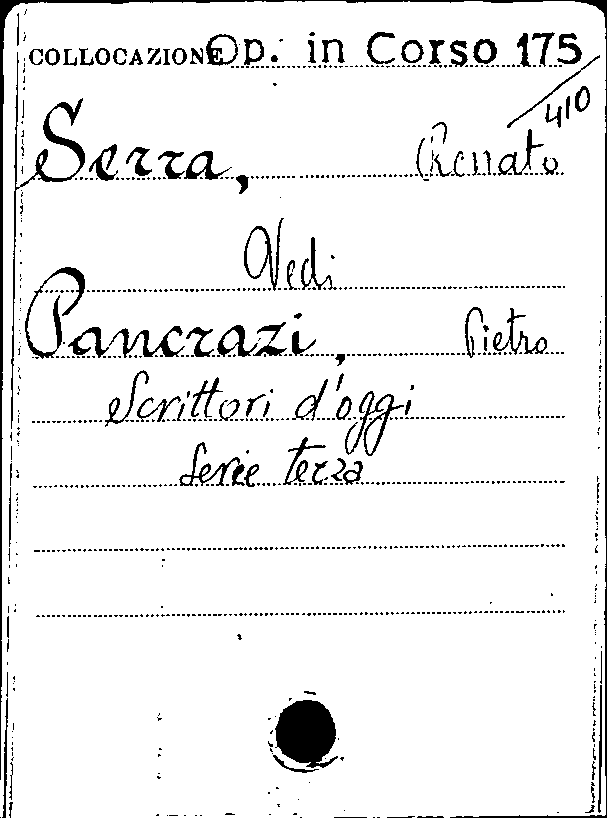 COLLOCAZIONE Op. in Corso 175
/410
Serra, Renato
Vedi
Pancrazi, Pietro
Scrittori d'oggi
Serie terza